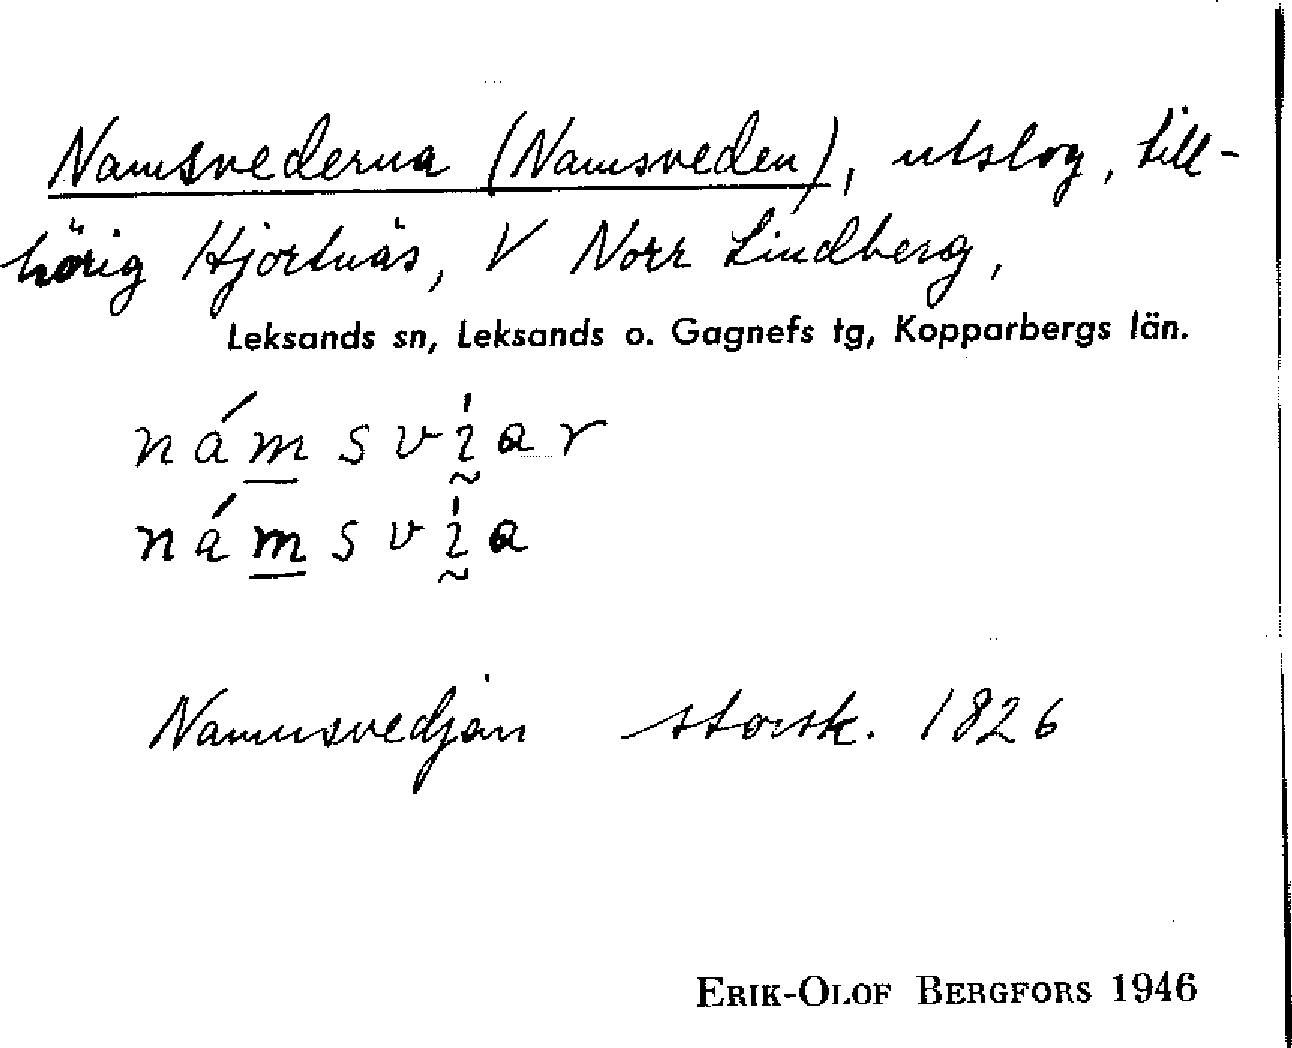 Namsvederna (Namsveden), utslog, till-
hörig Hjortnäs, V Norr Lindberg,
Leksands sn, Leksands o. Gagnefs tg, Kopparbergs län.
námsvı̰́ar
námsvı̰́a
Namnsvedjan storsk. 1826
ERIK-OLOF BERGFORS 1946